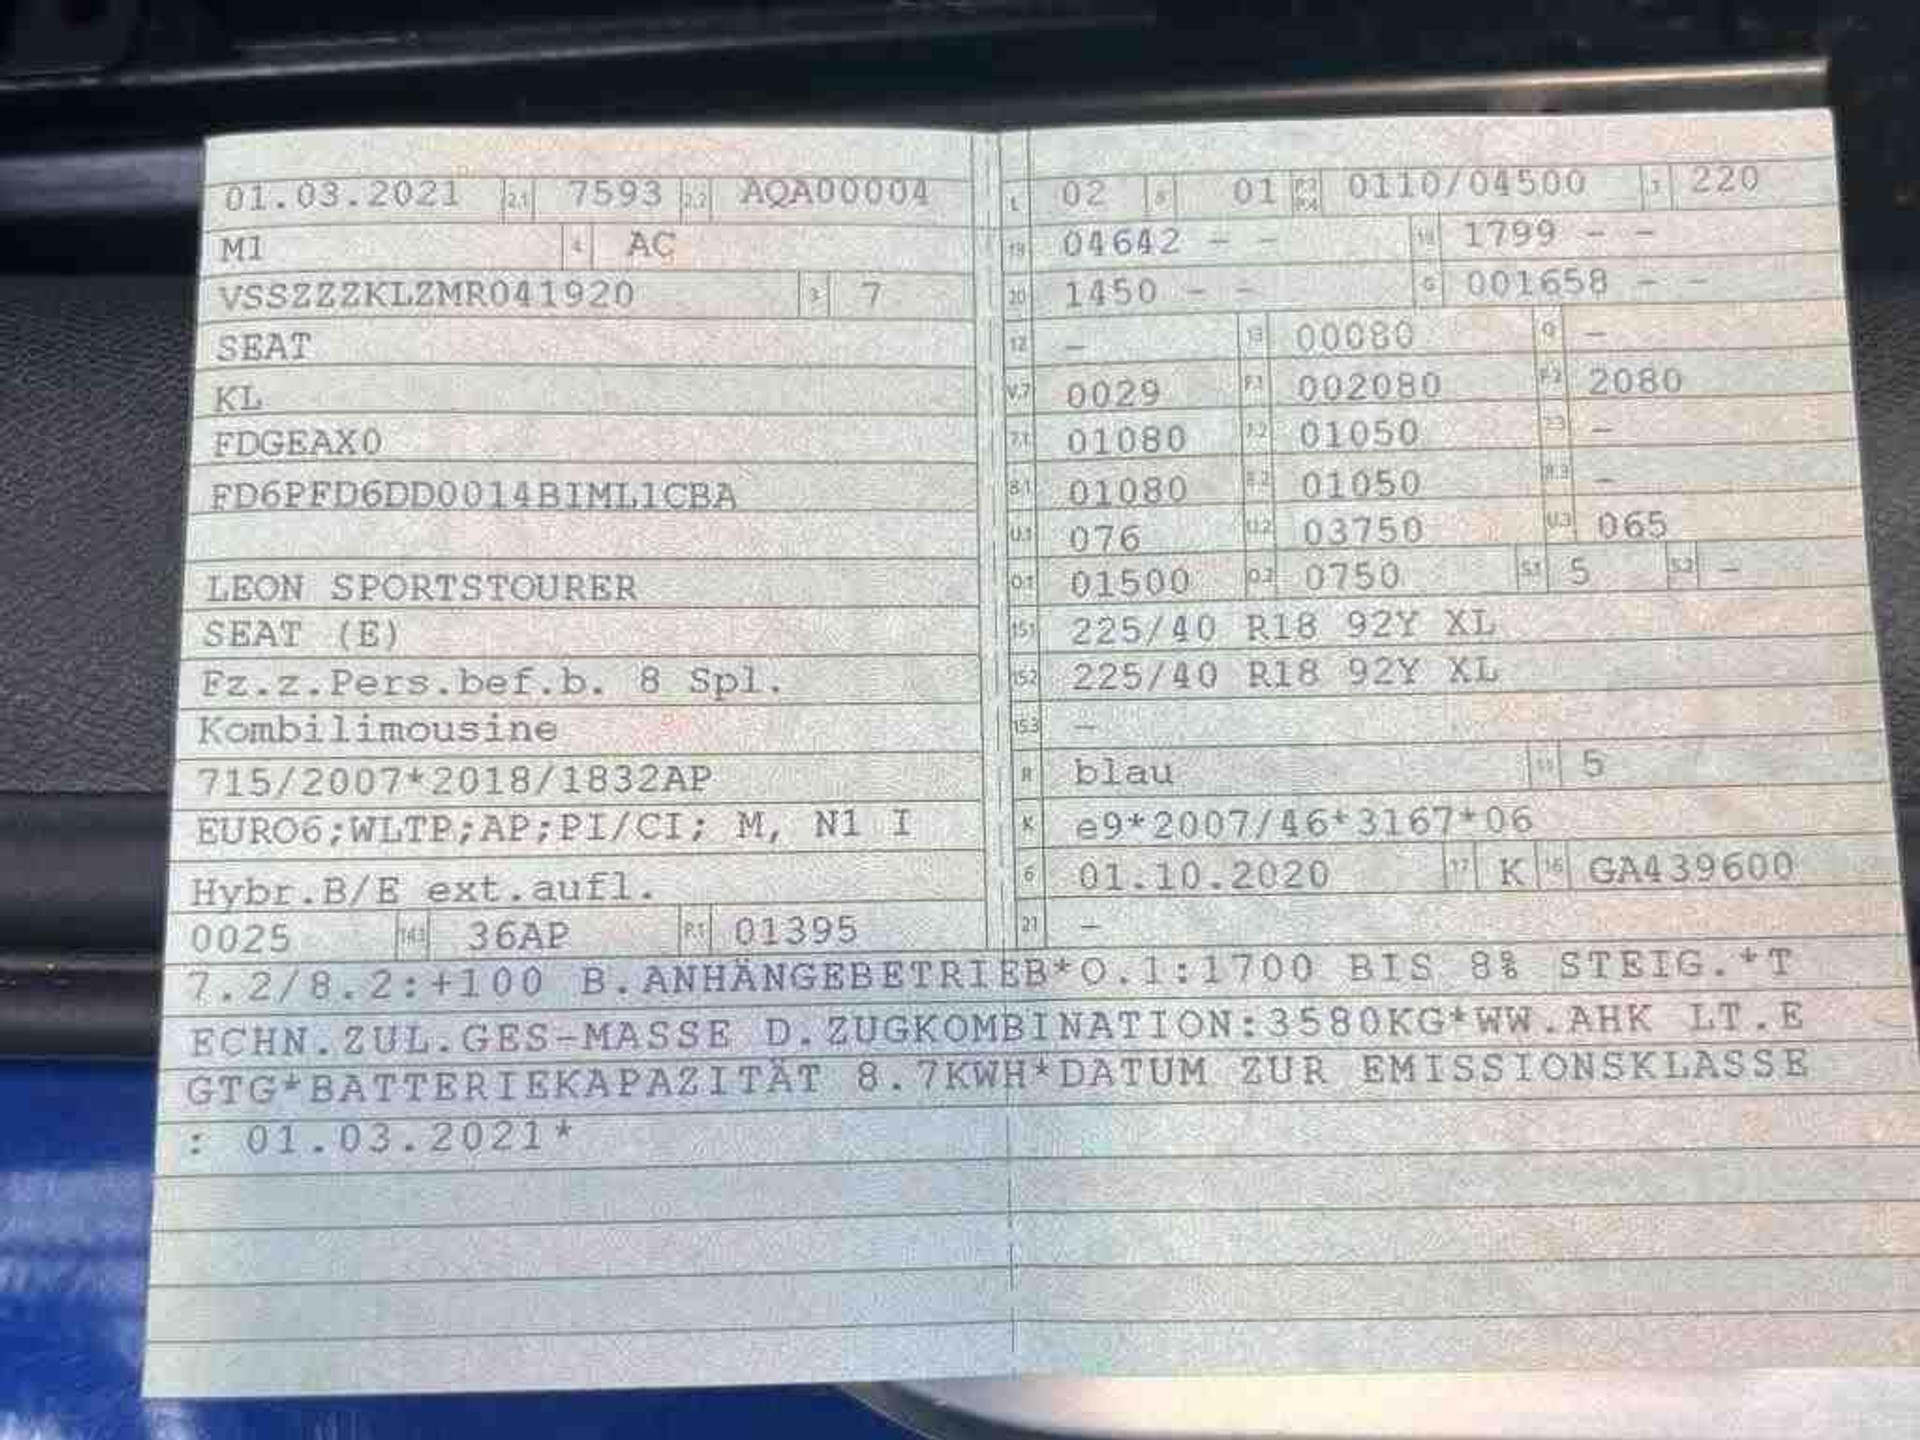 01.03.2021 2.1 7593 2.2 AQA00004
M1 4 AC
VSSZZZKLZMR041920 3 7
SEAT
KL
FDGEAX0
FD6PFD6DD0014BIML1CBA
LEON SPORTSTOURER
SEAT (E)
Fz.z.Pers.bef.b. 8 Spl.
Kombilimousine
715/2007*2018/1832AP
EURO6;WLTP;AP;PI/CI; M, N1 I
Hybr.B/E ext.aufl.
0025 14.1 36AP P.1 01395
L 02 9 01 P.2 P.4 0110/04500 T 220
18 04642 - - 19 1799 - -
20 1450 - - G 001658 - -
12 - 13 00080 Q -
V.7 0029 F.1 002080 F.2 2080
7.1 01080 7.2 01050 7.3 -
8.1 01080 8.2 01050 8.3 -
U.1 076 U.2 03750 U.3 065
O.1 01500 O.2 0750 S.1 5 S.2 -
15.1 225/40 R18 92Y XL
15.2 225/40 R18 92Y XL
15.3 -
R blau 11 5
K e9*2007/46*3167*06
6 01.10.2020 17 K 16 GA439600
21 -
7.2/8.2:+100 B.ANHÄNGEBETRIEB*O.1:1700 BIS 8% STEIG.*T
ECHN.ZUL.GES-MASSE D.ZUGKOMBINATION:3580KG*WW.AHK LT.E
GTG*BATTERIEKAPAZITÄT 8.7KWH*DATUM ZUR EMISSIONSKLASSE
: 01.03.2021*